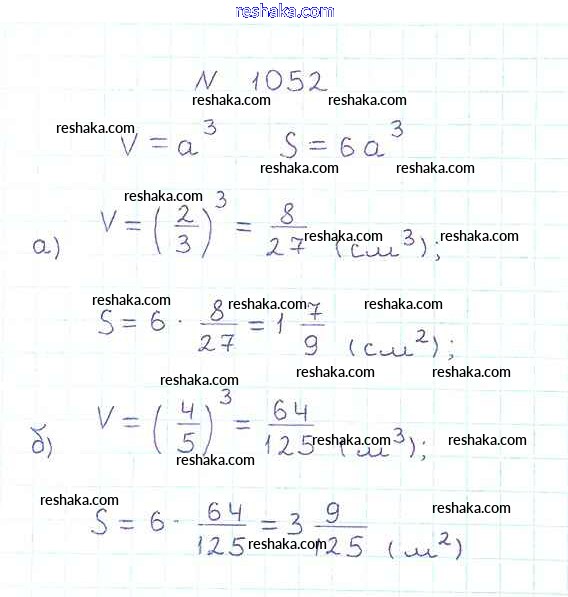 reshaka.com
N 1052
reshaka.com reshaka.com
reshaka.com
V = a³ S = 6a³
reshaka.com reshaka.com
reshaka.com
а) V = (2/3)³ = 8/27 (см³);
reshaka.com reshaka.com
reshaka.com reshaka.com reshaka.com
S = 6 · 8/27 = 1 7/9 (см²);
reshaka.com reshaka.com
reshaka.com
б) V = (4/5)³ = 64/125 (м³);
reshaka.com reshaka.com
reshaka.com
reshaka.com reshaka.com
S = 6 · 64/125 = 3 9/125 (м²)
reshaka.com